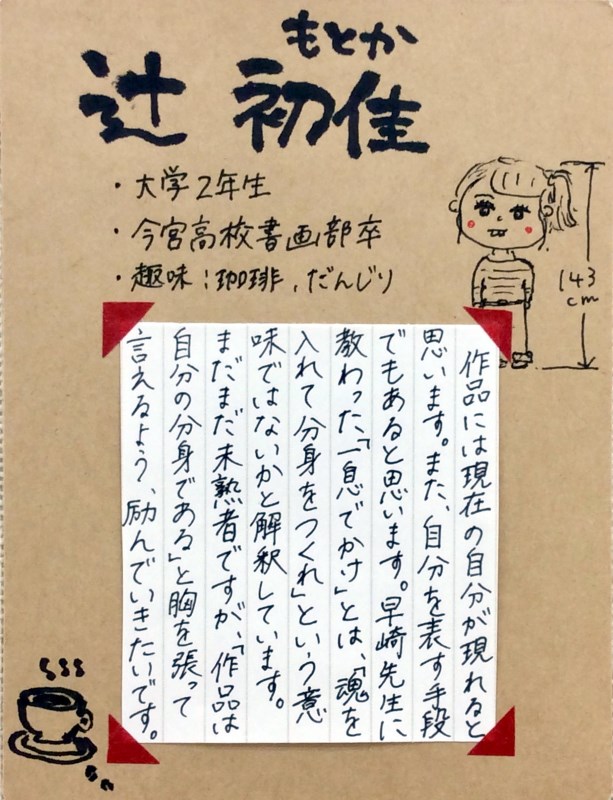 もとか
辻 初佳
・大学2年生
・今宮高校書画部卒
・趣味：珈琲、だんじり
143
cm
作品には現在の自分が現れると
思います。また、自分を表す手段
でもあると思います。早崎先生に
教わった「一息でかけ」とは、「魂を
入れて分身をつくれ」という意
味ではないかと解釈しています。
まだまだ未熟者ですが、「作品は
自分の分身である」と胸を張って
言えるよう、励んでいきたいです。